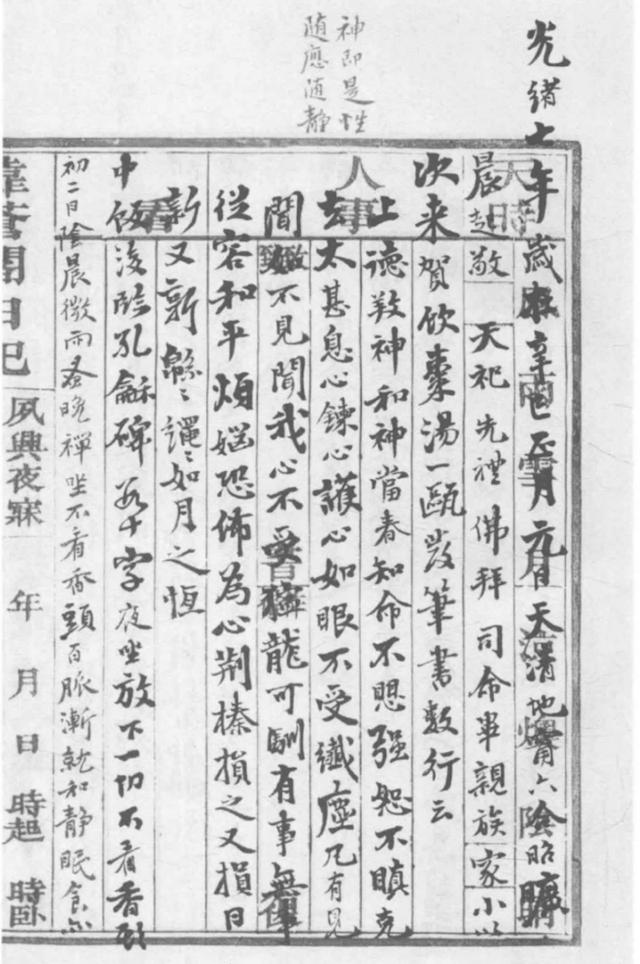 神即是性
随應随静
光緒七年歲在辛巳正月元日天清地甯六陰昭曠
晨起敬天祀先禮佛拜司命畢親族家小以
次来賀飲棗湯一甌發筆書數行云
上德敦神和神當春知命不憂强恕不瞋克
去太甚息心鍊心護心如眼不受纖塵凡有見
聞如不見聞我心不受獰龍可馴有事無事
從容和平煩惱恐怖為心荆榛損之又損日
新又新緜緜繩繩如月之恆
中飯後臨孔龢碑若干字夜坐放下一切不看香頭
初二日陰晨微雨蚤晚禪坐不看香頭百脈漸就和静眠食
日記
夙興夜寐 年 月 日 時起 時卧
天時
人事